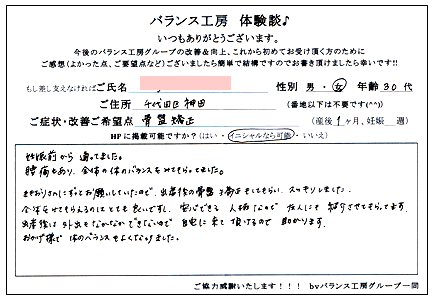 バランス工房 体験談♪
いつもありがとうございます。
今後のバランス工房グループの改善&向上、これから初めてお受け頂く方のために
ご感想(よかった点、ご要望点など)ございましたら簡単で結構ですのでお書き頂けましたら幸いです!!
もし差し支えなければご氏名 性別 男・女 年齢 30代
ご住所 千代田区神田 (番地以下は不要です(^^))
ご症状・改善ご希望点 骨盤矯正 (産後 1ヶ月、妊娠 週)
HPに掲載可能ですか?(はい・イニシャルなら可能・いいえ)
妊娠前から通ってました。
腰痛もあり、全体の体のバランスをみてもらってました。
さおりさんにずっとお願いしていたので、出産後の骨盤矯正をしてもらい、スッキリしました。
全体をみてもらえるのはとても良いですし、安心できる人柄なので 友人にも紹介させてもらってます。
出産後は外出もなかなかできないので 自宅に来て頂けるので 助かります。
おかげ様で 体のバランスもよくなりました。
ご協力感謝いたします!!! byバランス工房グループ一同